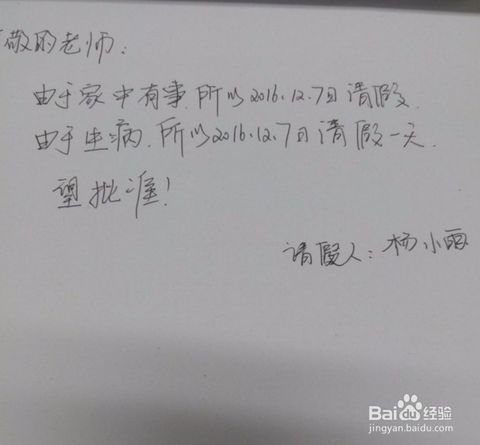 敬的老师:
由于家中有事.所以2016.12.7日请假.
由于生病.所以2016.12.7日请假一天.
望批准!
请假人:杨小雨
Bai du 经验
jingyan.baidu.com